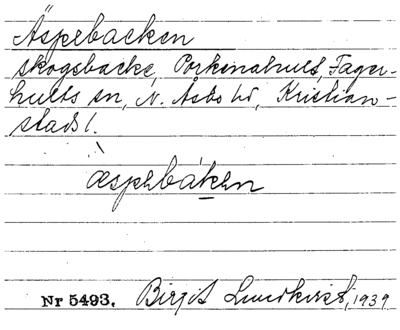 Äspebacken
skogsbacke, Porkenahult, Fager-
hults sn, N. Åsbo hd, Kristian-
stads l.
æspebákен
Nr 5493. Birgit Lundkvist, 1939